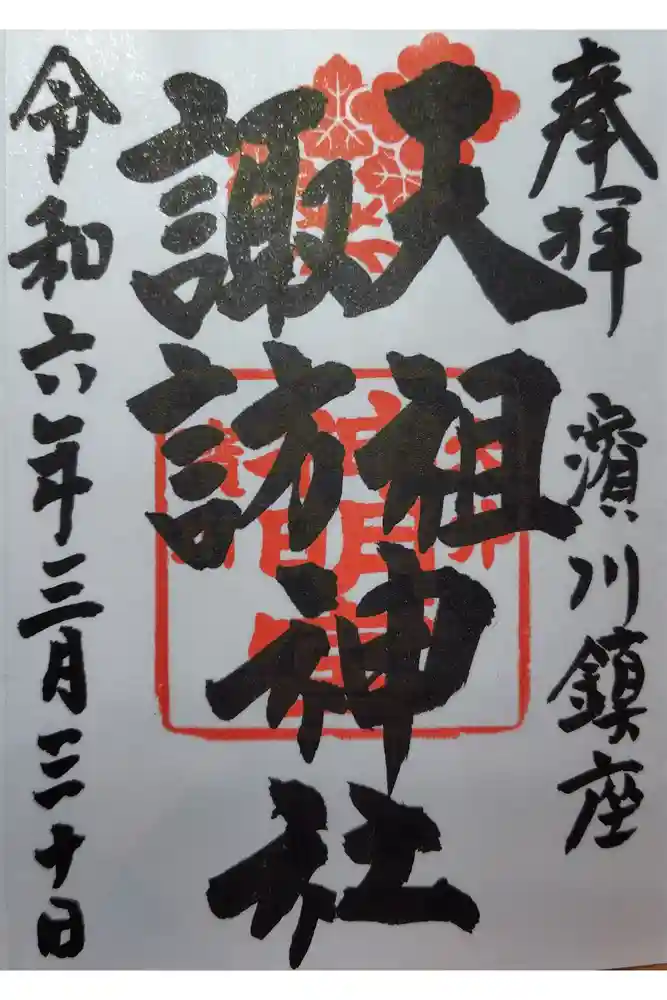 奉拝
濱川鎮座
天祖
諏訪
神社
令和六年三月三十日